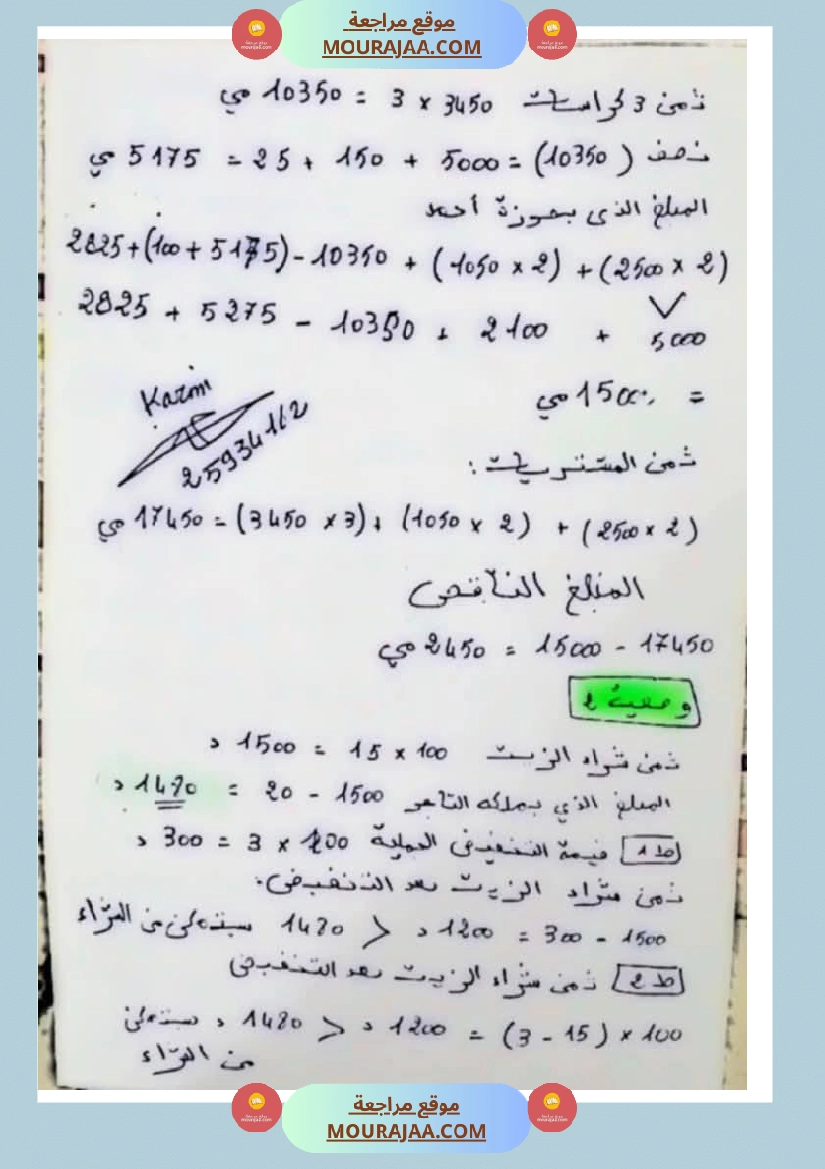 موقع مراجعة
MOURAJAA.COM
ثمن 3 كراسات 3450 × 3 = 10350 مي
نصف (10350) = 5000 + 150 + 25 = 5175 مي
المبلغ الذي بحوزة أحمد
(2 × 2500) + (2 × 1050) + 10350 - (5175 + 100) + 2825
5000 + 2100 + 10350 - 5275 + 2825
= 15000 مي
Karmi
25934112
ثمن المشتريات :
(2 × 2500) + (2 × 1050) + (3 × 3450) = 17450 مي
المبلغ الناقص
17450 - 15000 = 2450 مي
وضعية 2
ثمن شراء الزيت 100 × 15 = 1500 د
المبلغ الذي يملكه التاجر 1500 - 20 = 1480 د
ط 1 قيمة التخفيض الجملية 100 × 3 = 300 د
ثمن شراء الزيت بعد التخفيض.
1500 - 300 = 1200 د < 1480 سيتمكن من الشراء
ط 2 ثمن شراء الزيت بعد التخفيض
100 × (15 - 3) = 1200 د < 1480 د سيتمكن
من الشراء
موقع مراجعة
MOURAJAA.COM